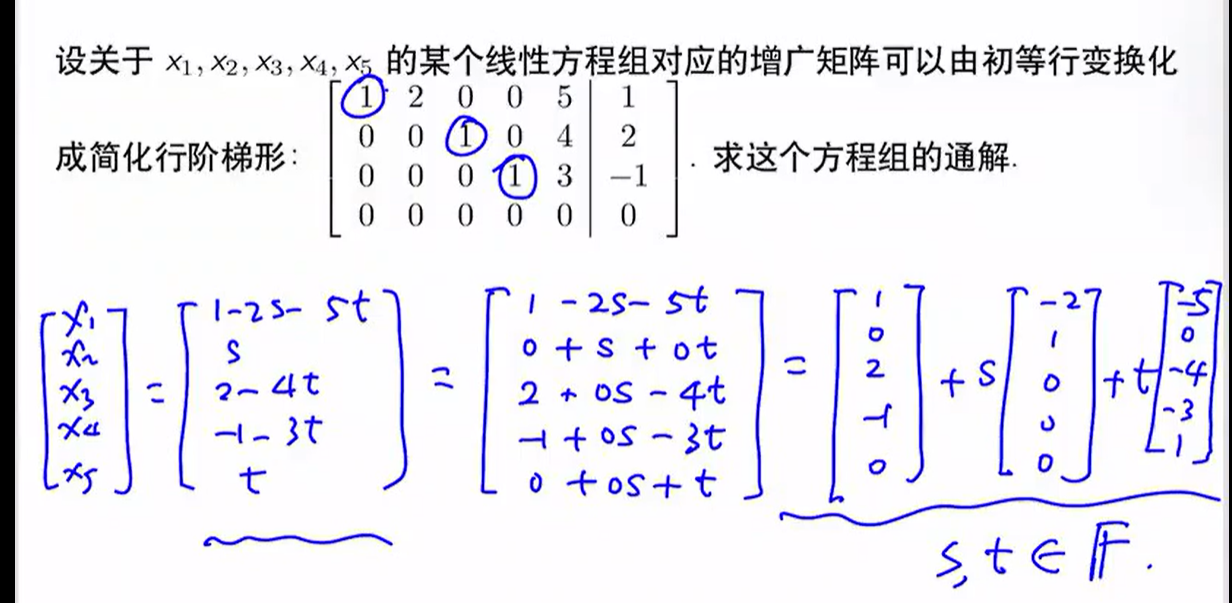 设关于 x₁, x₂, x₃, x₄, x₅ 的某个线性方程组对应的增广矩阵可以由初等行变换化
成简化行阶梯形： [ 1 2 0 0 5 | 1 ; 0 0 1 0 4 | 2 ; 0 0 0 1 3 | −1 ; 0 0 0 0 0 | 0 ] . 求这个方程组的通解.
[ x₁ ; x₂ ; x₃ ; x₄ ; x₅ ] = [ 1-2s-5t ; s ; 2-4t ; -1-3t ; t ] = [ 1-2s-5t ; 0+s+0t ; 2+0s-4t ; -1+0s-3t ; 0+0s+t ] = [ 1 ; 0 ; 2 ; -1 ; 0 ] + s [ -2 ; 1 ; 0 ; 0 ; 0 ] + t [ -5 ; 0 ; -4 ; -3 ; 1 ]
s, t ∈ 𝔽.